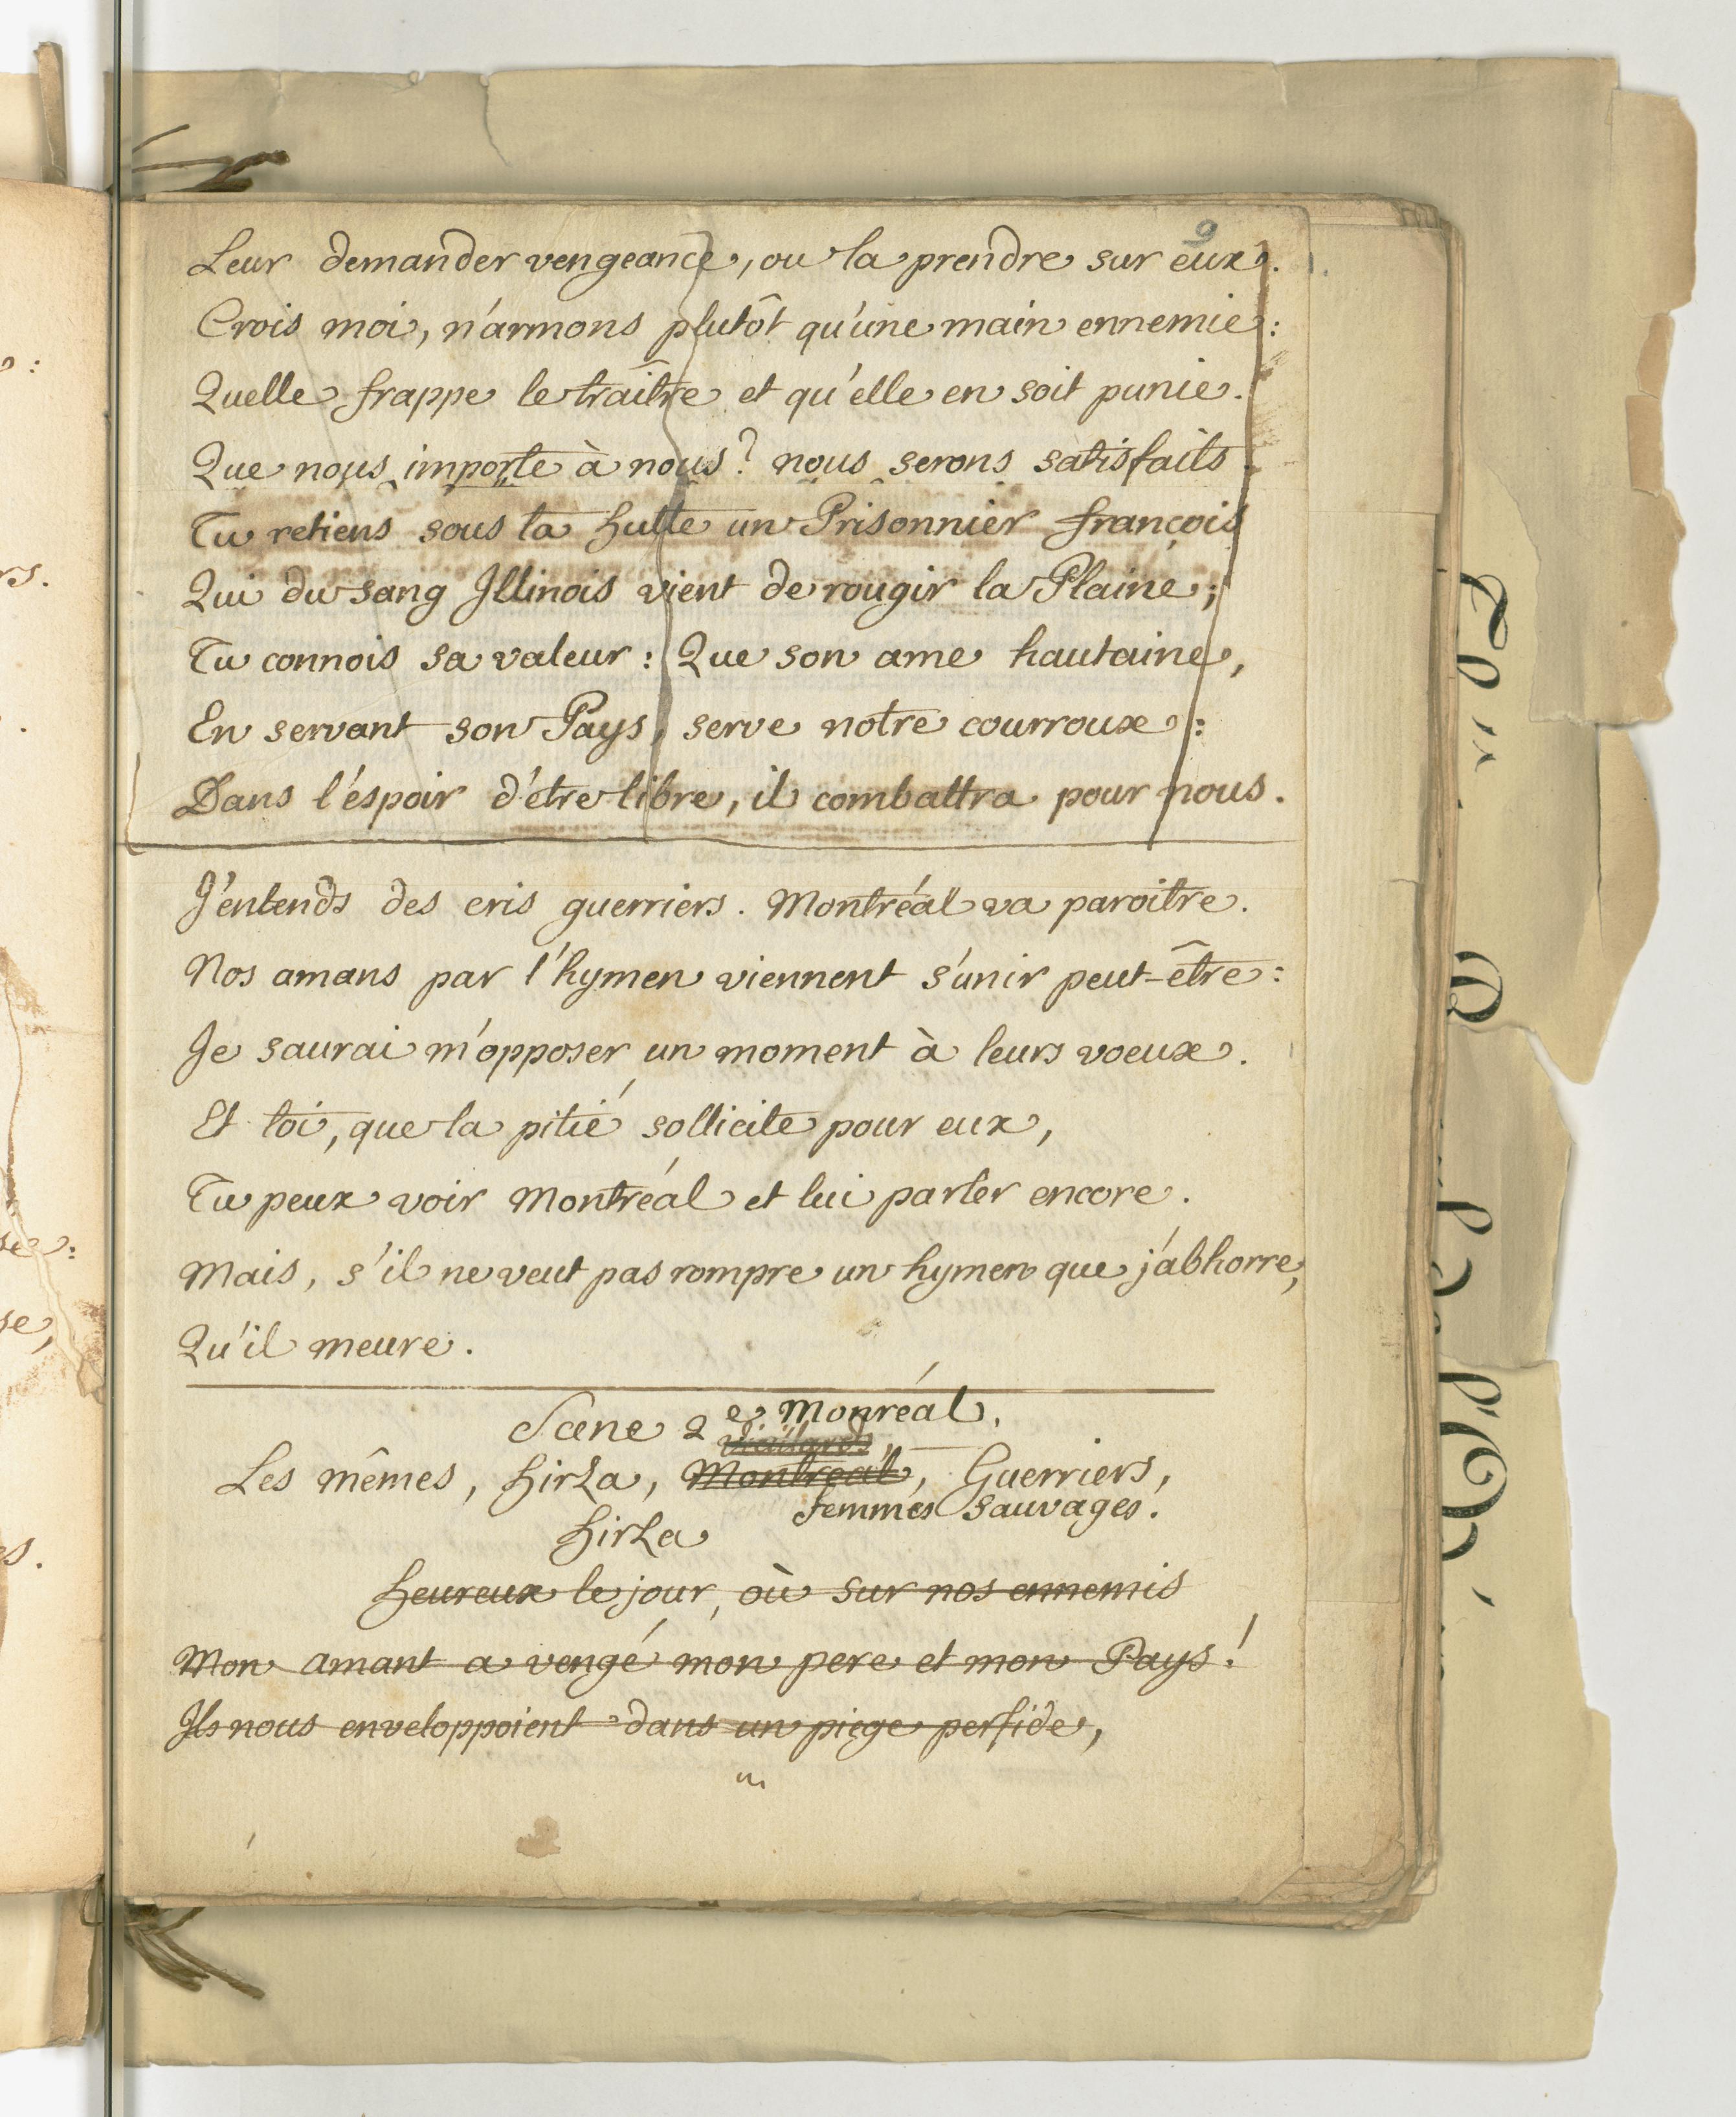 9
Leur demander vengeance, ou la prendre sur eux.
Crois moi, n'armons plutôt qu'une main ennemie :
Quelle frappe le traitre et qu'elle en soit punie.
Que nous importe à nous ? nous serons satisfaits.
Tu retiens sous ta hutte un Prisonnier françois
Qui du sang Illinois vient de rougir la Plaine ;
Tu connois sa valeur : Que son ame hautaine,
En servant son Pays, serve notre courroux :
Dans l'éspoir d'être libre, il combattra pour nous.
J'entends des cris guerriers. Montréal va paroitre.
Nos amans par l'hymen viennent s'unir peut-être :
Je saurai m'opposer un moment à leurs voeux.
Et toi, que la pitié sollicite pour eux,
Tu peux voir Montréal et lui parler encore.
Mais, s'il ne veut pas rompre un hymen que j'abhorre,
Qu'il meure.
Scene 2e Monréal,
Les mêmes, hirza, Montreal, Guerriers,
femmes Sauvages.
hirza
heureux le jour, où sur nos ennemis
Mon amant a vengé mon pere et mon Pays !
Ils nous enveloppoient dans un piege perfide,